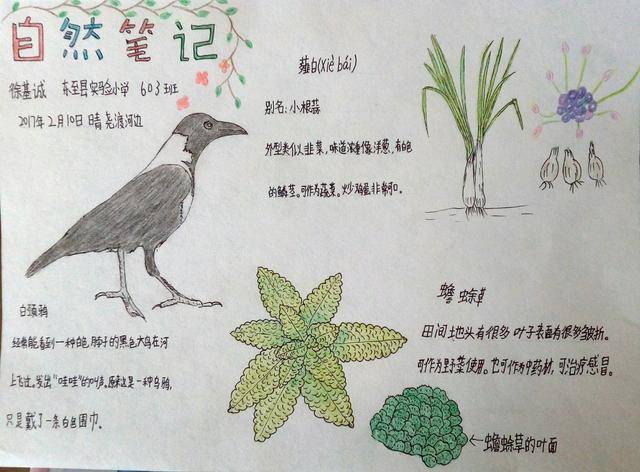 自然笔记
徐基诚 东至县实验小学 603班
2017年2月10日 晴 尧渡河边
薤白(xiè bái)
别名:小根蒜
外型类似韭菜,味道浓重像洋葱,有白色
的鳞茎。可作为蔬菜。炒鸡蛋非常可口。
白颈鸦
经常能看到一种白色脖子的黑色大鸟在河
上飞过。发出“哇哇”的叫声。原来这是一种乌鸦,
只是戴了一条白色围巾。
蟾蜍草
田间地头有很多 叶子表面有很多皱折。
可作为野菜使用。也可作为中药材,可治疗感冒。
←蟾蜍草的叶面